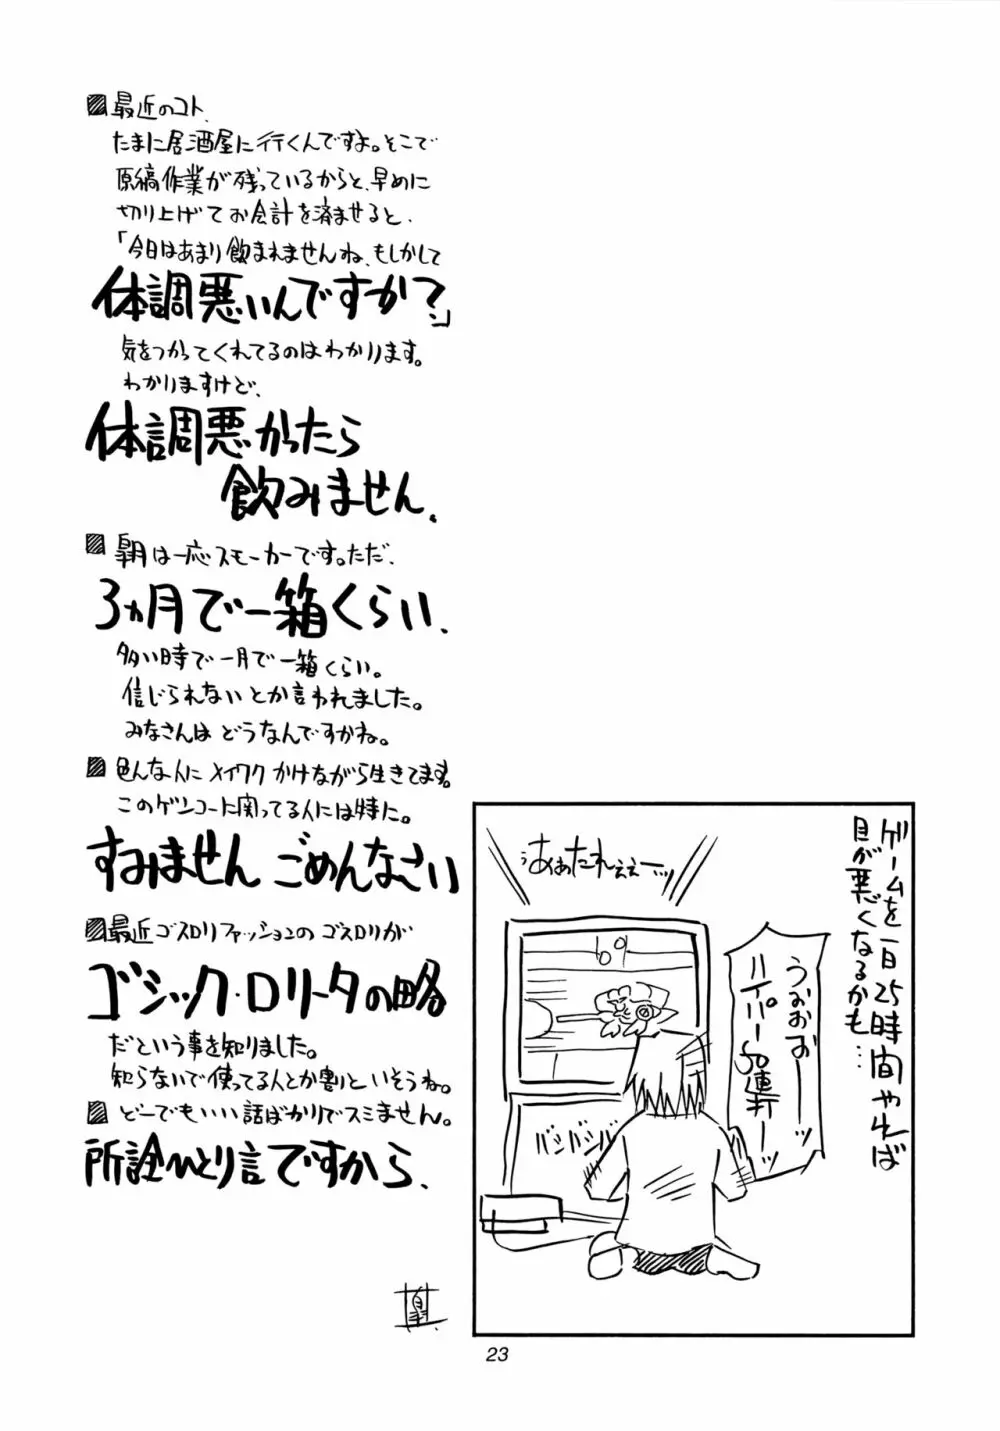 最近のコト.
たまに居酒屋に行くんですよ。そこで
原稿作業が残っているからと、早めに
切り上げてお会計を済ませると、
「今日はあまり飲まれませんね、もしかして
体調悪いんですか？」
気をつかってくれてるのはわかります。
わかりますけど、
体調悪かったら
飲みません.
は一応スモーカーです。ただ、
3ヵ月で一箱くらい.
多い時で一月で一箱くらい。
信じられないとか言われました。
みなさんは どうなんですかね。
色んな人に メイワク かけながら生きてます。
このゲンコーに関ってる人には特に。
すみません ごめんなさい
最近 ゴスロリファッションの ゴスロリが
ゴシック・ロリータの略
だという事を知りました。
知らないで使ってる人とか割といそうね。
どーでもいい話ばかりでスミません。
所詮ひとり言ですから.
ゲームを一日25時間やれば
目が悪くなるかも…
うぉおおーーッ
ハイパー50連打ーッ
バンバンバン
23